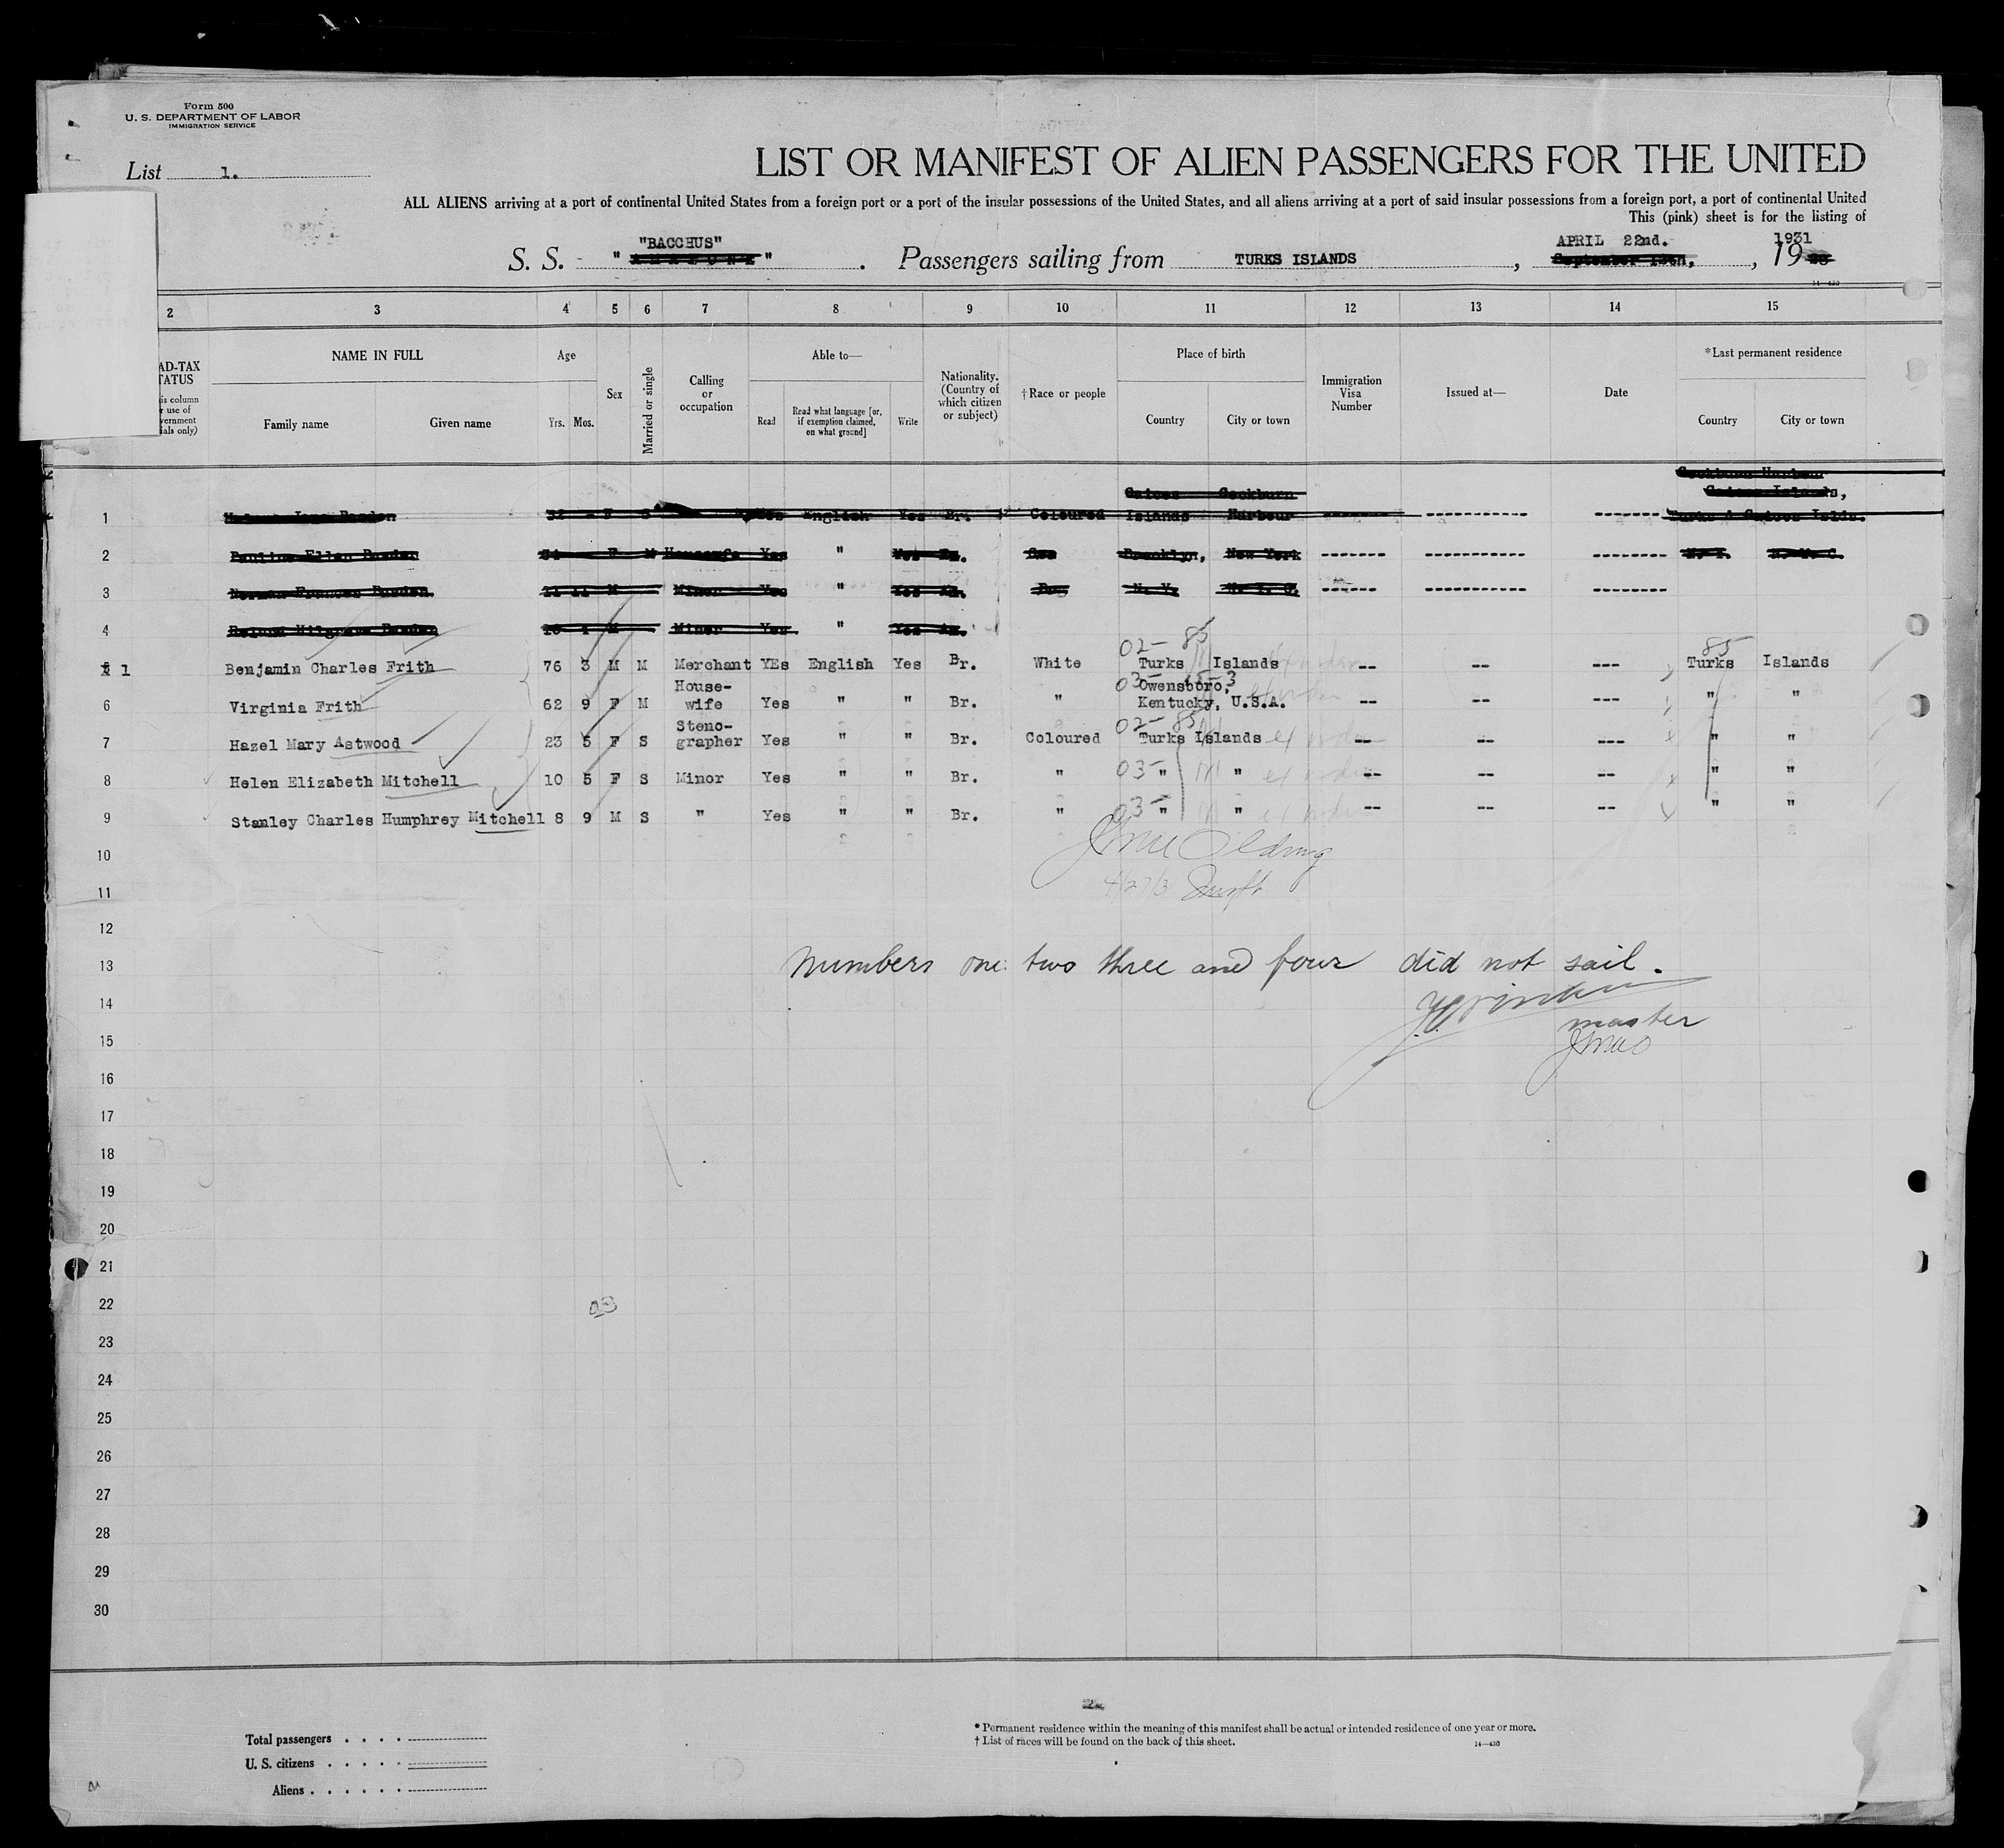 Form 500
U. S. DEPARTMENT OF LABOR
IMMIGRATION SERVICE
List 1.
LIST OR MANIFEST OF ALIEN PASSENGERS FOR THE UNITED
ALL ALIENS arriving at a port of continental United States from a foreign port or a port of the insular possessions of the United States, and all aliens arriving at a port of said insular possessions from a foreign port, a port of continental United
This (pink) sheet is for the listing of
"BACCHUS" APRIL 22nd. 1931
S. S. " " . Passengers sailing from TURKS ISLANDS , September 12th, , 19
14—430
2 3 4 5 6 7 8 9 10 11 12 13 14 15
AD-TAX
TATUS
is column
use of
vernment
ials only)
NAME IN FULL
Family name Given name
Age
Yrs. Mos.
Sex
Married or single
Calling
or
occupation
Able to—
Read
Read what language [or,
if exemption claimed,
on what ground]
Write
Nationality.
(Country of
which citizen
or subject)
† Race or people
Place of birth
Country City or town
Immigration
Visa
Number
Issued at—
Date
* Last permanent residence
Country City or town
Caicos Cockburn
1 32 - F S Yes English Yes Br. Coloured Islands Harbour -------- ------------ -------- Turks & Caicos Islds.
2 Pauline Ellen F M Housewife Yes " Brooklyn, New York -------- ------------ --------
3 Norman 11 11 M Minor Yes " Yes N. Y. -------- ------------ --------
4 Roland Minor Yes " Yes
02- 85 85
1 Benjamin Charles Frith 76 3 M M Merchant YEs English Yes Br. White Turks Islands -- -- --- Turks Islands
House- 03- Owensboro,
6 Virginia Frith 62 9 F M wife Yes " " Br. " Kentucky, U.S.A. -- -- --- " "
Steno- 02- 85
7 Hazel Mary Astwood 23 5 F S grapher Yes " " Br. Coloured Turks Islands -- -- --- " "
8 Helen Elizabeth Mitchell 10 5 F S Minor Yes " " Br. " 03- " " -- -- -- " "
9 Stanley Charles Humphrey Mitchell 8 9 M S " Yes " " Br. " 03- " " -- -- -- " "
10
11
12
13 Numbers one two three and four did not sail.
14
master
15
16
17
18
19
20
21
22
23
24
25
26
27
28
29
30
Total passengers . . . .
U. S. citizens . . . . .
Aliens . . . . . .
* Permanent residence within the meaning of this manifest shall be actual or intended residence of one year or more.
† List of races will be found on the back of this sheet. 14—430